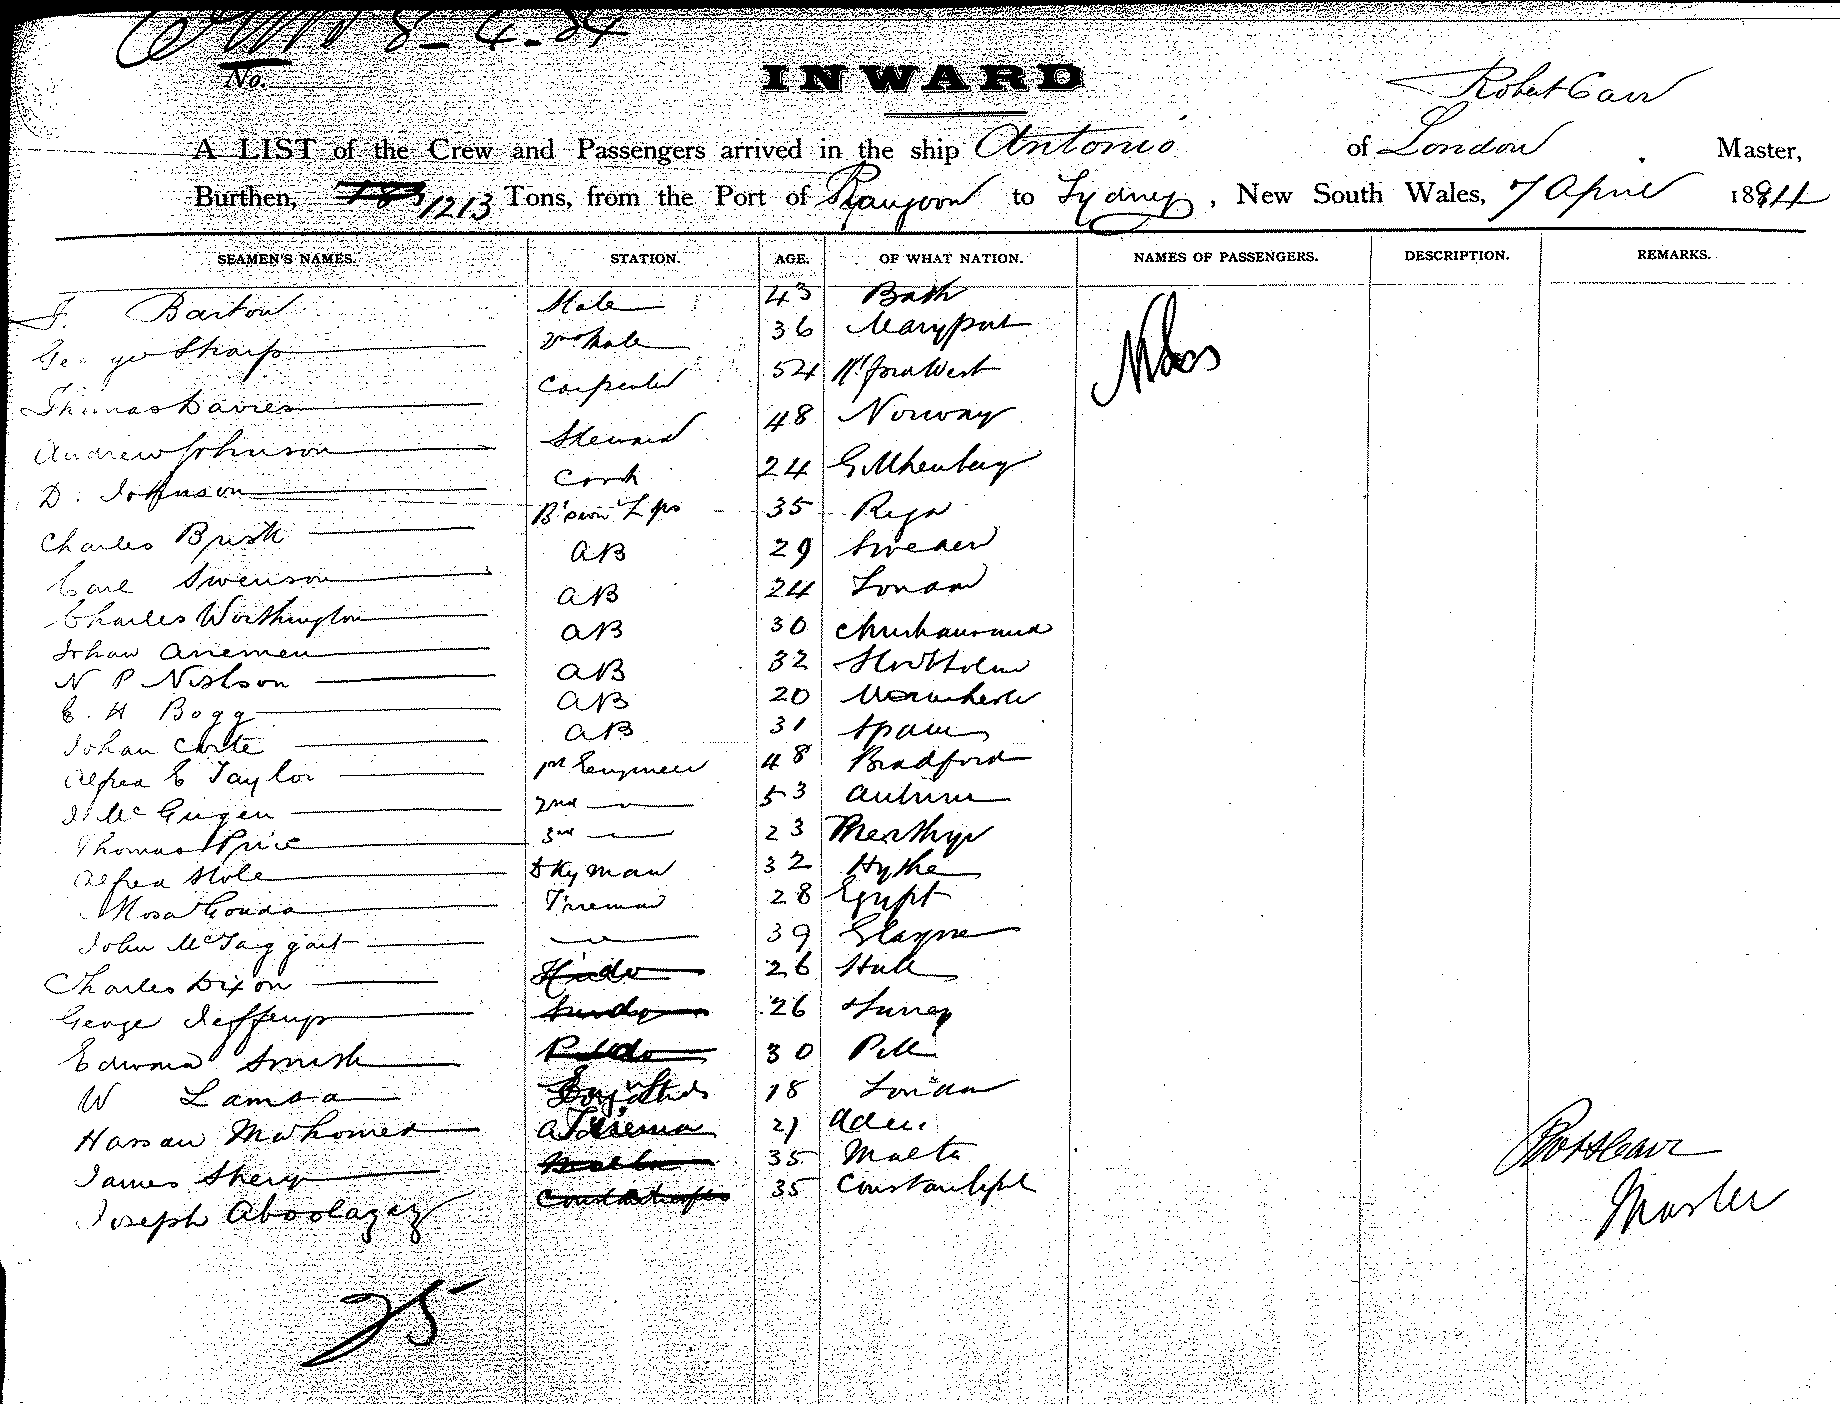 8-4-84
No.
INWARD
Robert Carr
A LIST of the Crew and Passengers arrived in the ship Antonio of London Master,
Burthen, 1213 Tons, from the Port of Rangoon to Sydney, New South Wales, 7 April 1884
SEAMEN'S NAMES. STATION. AGE. OF WHAT NATION. NAMES OF PASSENGERS. DESCRIPTION. REMARKS.
J. Barton Mate 43 Bath
George Sharp 2nd Mate 36 Maryport
Thomas Davies Carpenter 54
Andrew Johnson Steward 48 Norway
D. Johnson Cook 24 Gothenburg
Charles 35 Riga
Carl Swenson AB 29 Sweden
Charles Worthington AB 24 London
Johan AB 30
N P Nielson AB 32 Stockholm
E. H Bogg AB 20
Johan AB 31 Spain
Alfred E Taylor 1st Engineer 48 Bradford
J Mc Gugen 2nd 53
Thomas Price 3rd 23 Merthyr
Alfred Hole Dkyman 32 Hythe
Mosa Gouda Fireman 28 Egypt
John McTaggart 39 Glasgow
Charles Dixon 26 Hull
George Jefferys 26 Surrey
Edward Smith 30 Pill
W 18 London
Hassan Mahomed Fireman 21 Aden
James 35 Malta
Joseph Aboolazez 35 Constantple
Robt Carr
Master
25